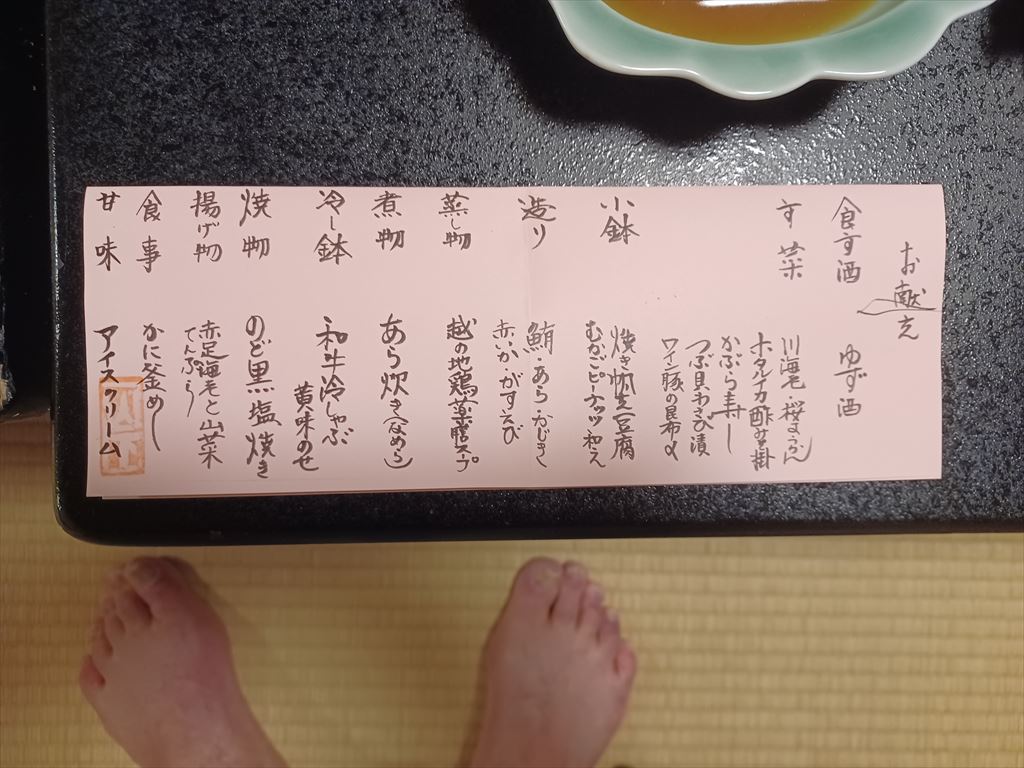 お献立
食す酒 ゆず酒
す菜 川海老・桜ようかん
ホタルイカ酢みそ掛
かぶら寿し
つぶ貝わさび漬
ワイン豚の昆布〆
小鉢 焼き帆立豆腐
むかごピーナッツ和え
造り 鮪・あら・かじき
赤いか・がすえび
蒸し物 越の地鶏薬膳スープ
煮物 あら炊き(なめら)
冷し鉢 和牛冷しゃぶ
黄味のせ
焼物 のど黒塩焼き
揚げ物 赤足海老と山菜
てんぷら
食事 かに釜めし
甘味 アイスクリーム